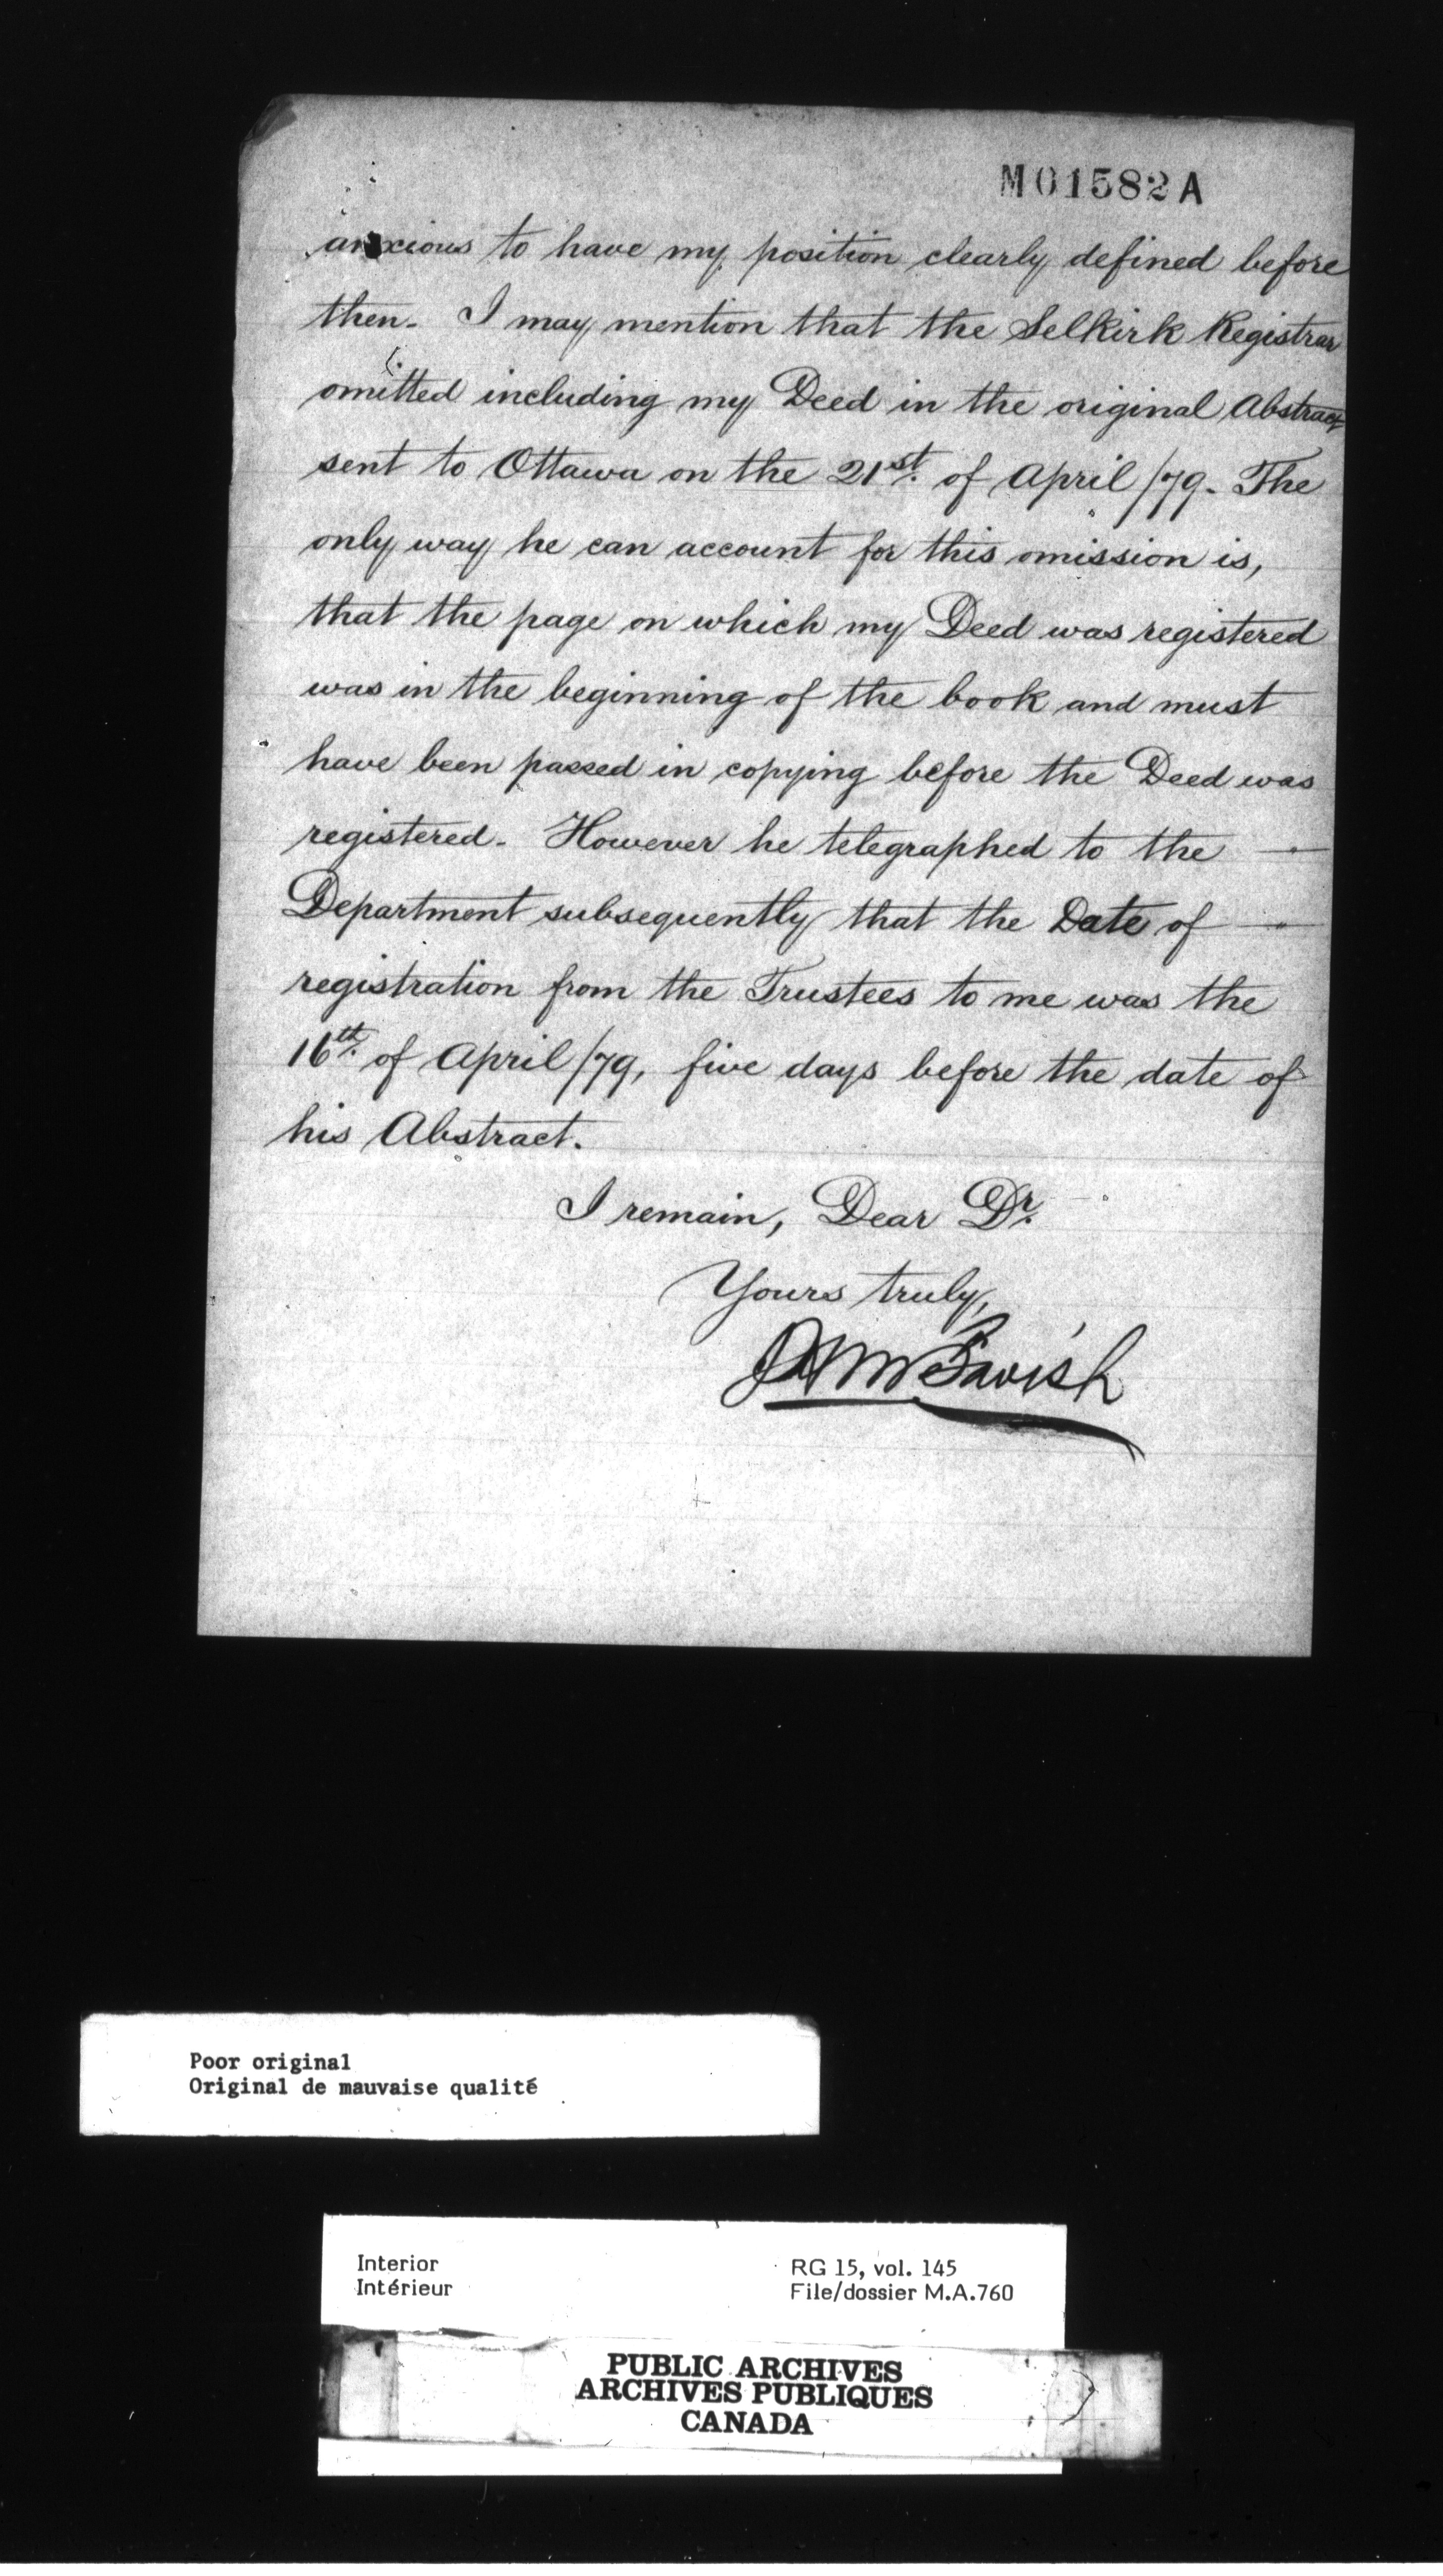 M01582A
anxious to have my position clearly defined before
then. I may mention that the Selkirk Registrar
omitted including my Deed in the original Abstract
sent to Ottawa on the 21st. of April /79. The
only way he can account for this omission is,
that the page on which my Deed was registered
was in the beginning of the book and must
have been passed in copying before the Deed was
registered. However he telegraphed to the —
Department subsequently that the Date of —
registration from the Trustees to me was the
16th. of April /79, five days before the date of
his Abstract.
I remain, Dear Dr.
Yours truly,
McTavish
Poor original
Original de mauvaise qualité
Interior
Intérieur
RG 15, vol. 145
File/dossier M.A.760
PUBLIC ARCHIVES
ARCHIVES PUBLIQUES
CANADA